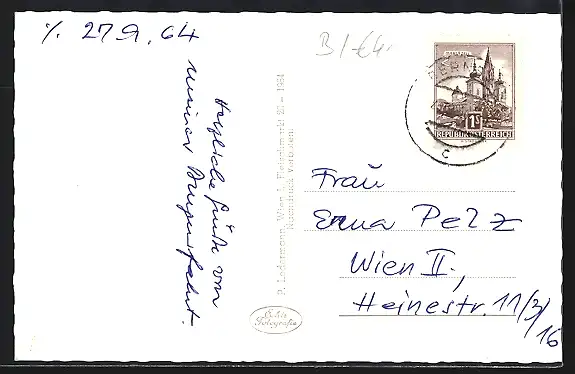 27.9.64
Herzliche Grüße von
meiner
B/-€4.-
P. Ledermann, Wien I, Fleischmarkt 20 - 1964
Nachdruck verboten
Echte
Fotografie
MARIAZELL
1S
REPUBLIK ÖSTERREICH
C
Frau
Erna Pelz
Wien II.,
Heinestr. 11/2/
16